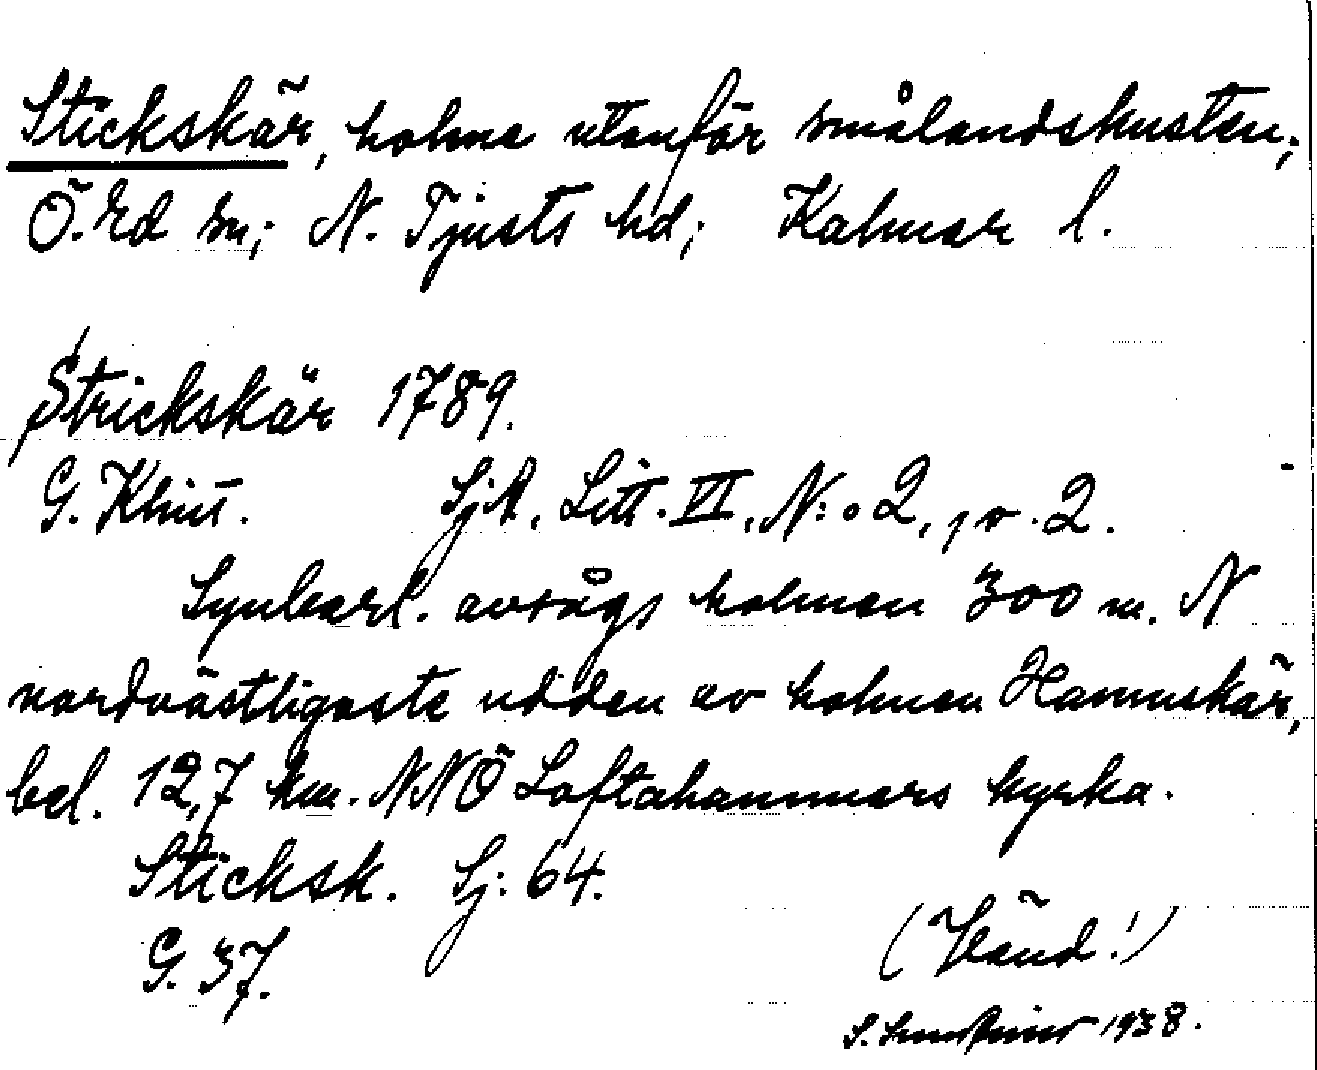 Stickskär, holme utanför smålandskusten;
Ö. Ed sn; N. Tjusts hd; Kalmar l.
Strickskär 1789.
G. Klint. SjA, Litt. VI, N:o 2, p. 2.
Synbarl. avsågs holmen 300 m. N
nordvästligaste udden av holmen Hamnskär,
bel. 12,7 km. NNÖ Loftahammars kyrka.
Sticksk. Sj: 64.
G. 37. (Vänd!)
1938.